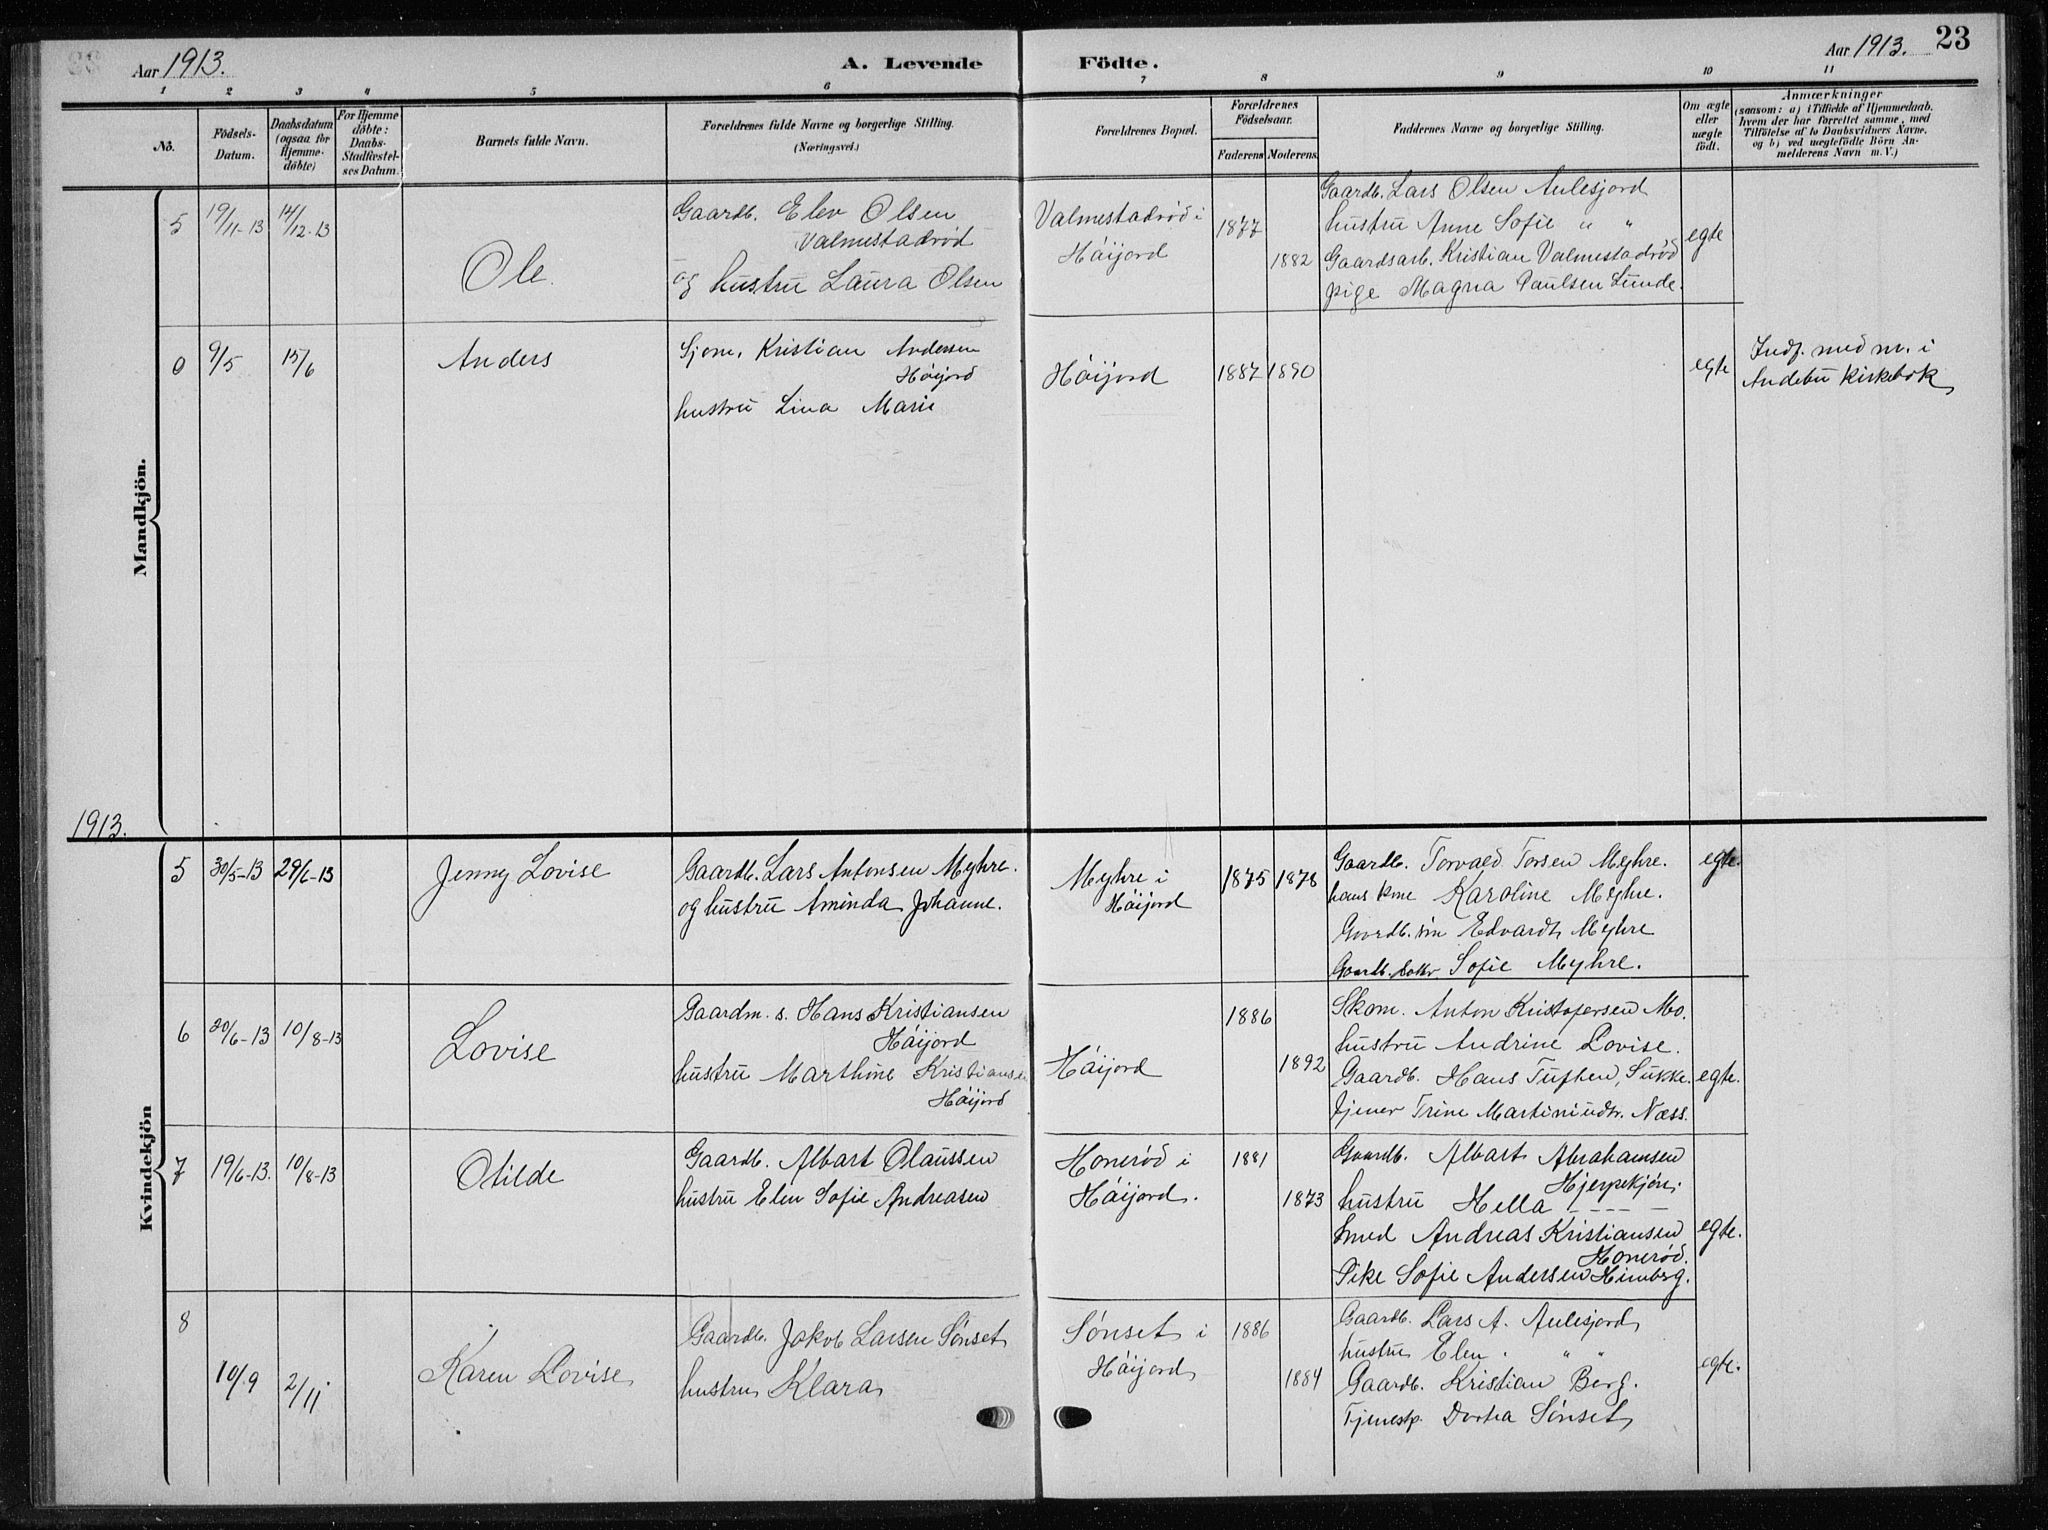 Aar 1913.
A. Levende Födte.
Aar 1913. 23
1 2 3 4 5 6 7 8 9 10 11
Nô.
Födsels-Datum.
Daabsdatum (ogsaa for Hjemme-döbte)
For Hjemme döbte: Daabs-Stadfæstel-ses Datum.
Barnets fulde Navn.
Forældrenes fulde Navne og borgerlige Stilling.
(Næringsvei.)
Forældrenes Bopæl.
Forældrenes Födselsaar.
Faderens Moderens
Faddernes Navne og borgerlige Stilling.
Om ægte eller uægte födt.
Anmærkninger
(saasom: a) i Tilfælde af Hjemmedaab.
hvem der har forrettet samme, med
Tilföielse af to Daabsvidners Navne,
og b) ved uægtefödte Börn An-
melderens Navn m. V.)
Mandkjön.
5 19/11-13 14/12-13
Ole
Gaardb. Elev Olsen
Valmestadrød
og hustru Laura Olsen
Valmestadrød i
Håijord
1877
1882
Gaardb. Lars Olsen Aulesjord
hustru Anne Sofie " "
Gaardsarb. Kristian Valmestadrød
pige Magna Paulsen Lunde.
egte
0 9/5 15/6
Anders
Sjøm. Kristian Andersen
Håijord
hustru Lina Marie
Håijord
1887 1890
egte
Indf. med nr. i
Andebu Kirkebok
1913.
Kvindekjön
5 30/5-13 29/6-13
Jenny Lovise
Gaardb. Lars Antonsen Myhre.
og hustru Aminda Johanne.
Myhre i
Håijord
1875 1878
Gaardb. Torvald Torsen Myhre.
hans kone Karoline Myhre.
Gaardb. søn Edvardt Myhre
Gaardb. Sofie Myhre.
egte.
6 20/6-13 10/8-13
Lovise
Gaardm. s. Hans Kristiansen
Håijord
hustru Marthine Kristiansen
Håijord
Håijord
1886
1892
Skom. Anton Kristofersen Mo.
hustru Andrine Lovise.
Gaardb. Hans Tuften, Sukke.
tjener Trine Martiniusdtr. Næss.
egte.
7 19/6-13. 10/8-13
Otilde
Gaardb. Albart Olaussen
hustru Elen Sofie Andreasen
Honerød i
Håijord.
1881
1873
Gaardb. Albart Abrahamsen
Hjerpekjøn;
hustru Hella - - - -
Smed Andreas Kristiansen
Honerød.
Pike Sofie Andersen Himberg.
egte.
8
10/9 2/11
Karen Lovise
Gaardb. Jakob Larsen Sønset
hustru Klara
Sønset i
Håijord
1886
1884
Gaardb. Lars A. Aulesjord
hustru Elen " "
Gaardb. Kristian Berg.
Tjenestp. Dortea Sønset
egte.